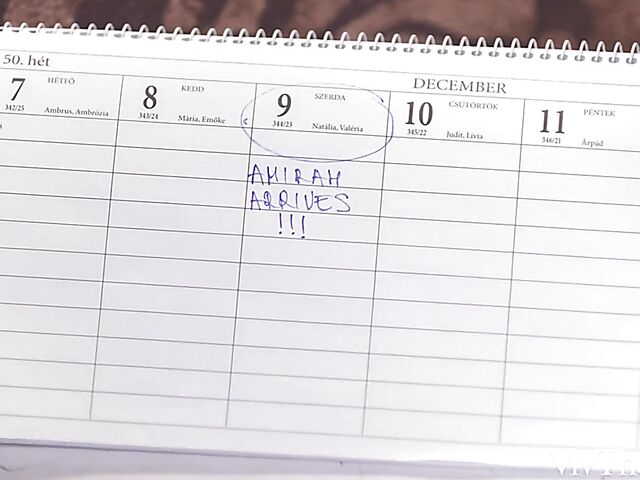 50. hét
DECEMBER
7 HÉTFŐ
342/23 Ambrus, Ambrózia
8 KEDD
343/24 Mária, Emőke
9 SZERDA
344/23 Natália, Valéria
10 CSÜTÖRTÖK
345/22 Judit, Lívia
11 PÉNTEK
346/21 Árpád
8
AMIRAH
ARRIVES
!!!